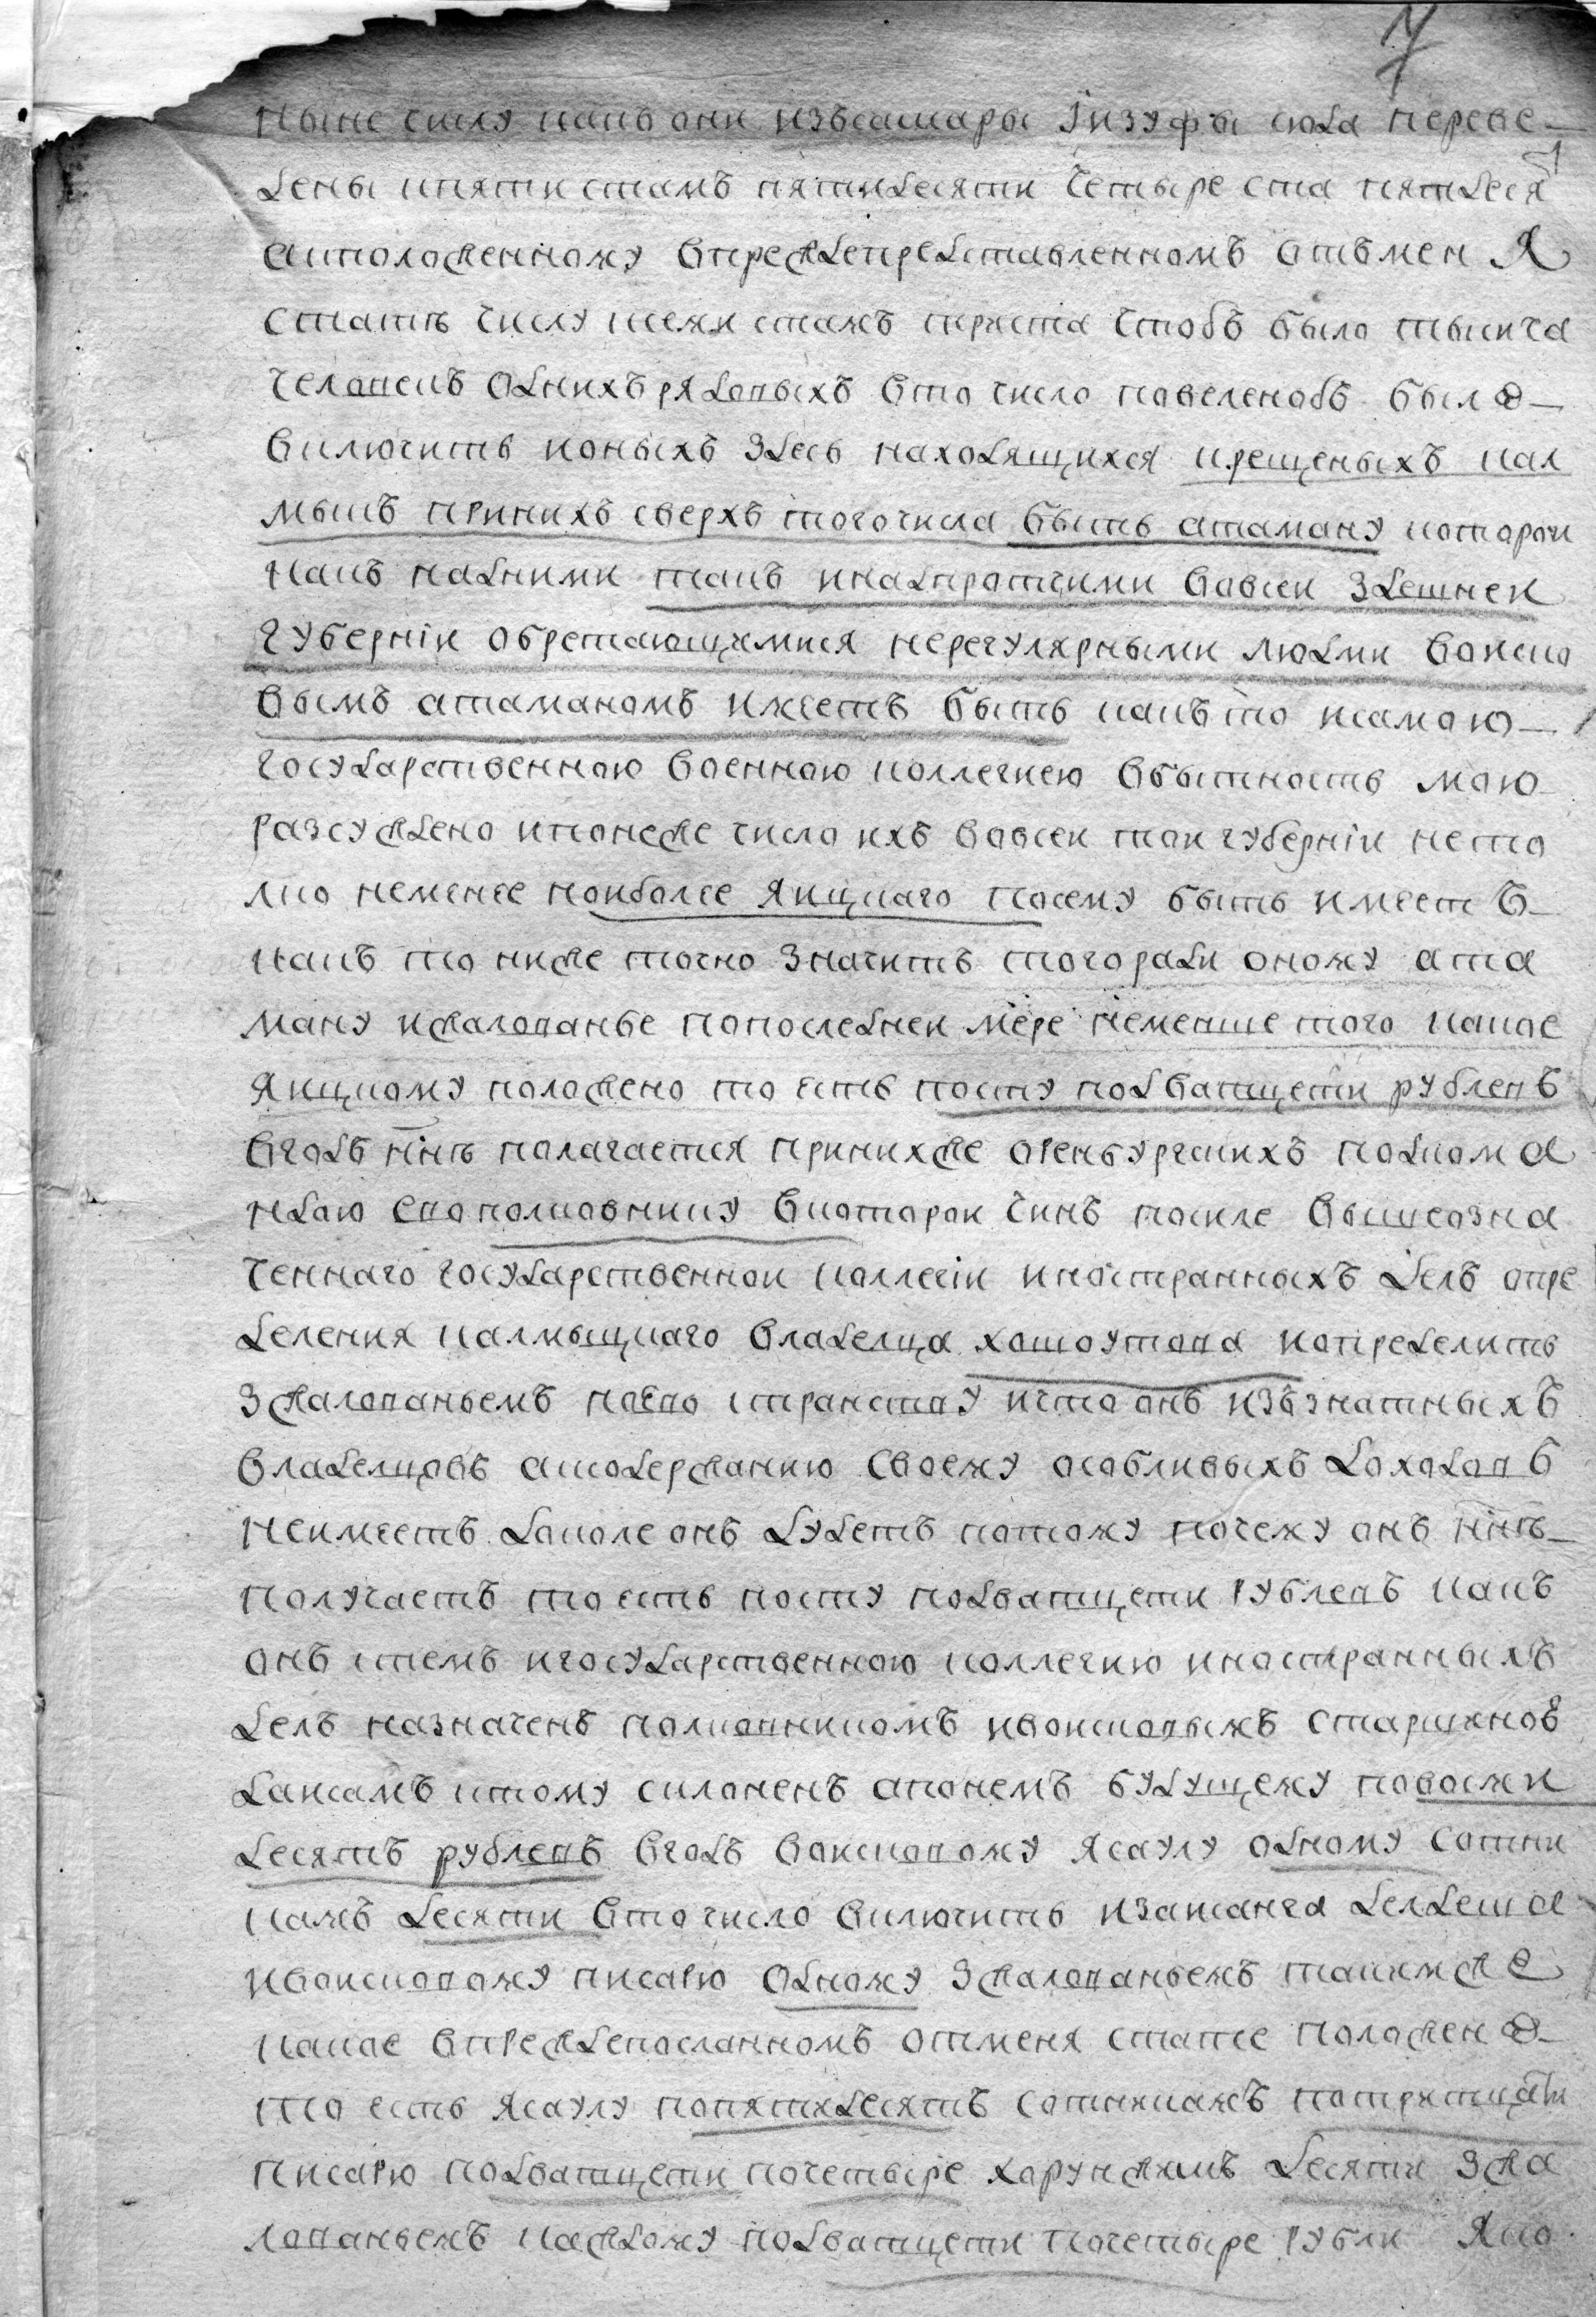 7
ныне силу какъ они изъсамары iизуфы сюда переве
дены кпяти стамъ пятидесяти четыре ста пятдеся
т
ати положенному впреждепредставленномъ отъмен я
статъ числу шеми стамъ триста чтобъ было тысяча
человекъ однихъ рядовыхъ вто число повеленобъ было
включить ионыхъ здесь находящихся крещеныхъ кал
мыкъ приникъ сверхъ тогочисла быть атаману которой
какъ надними такъ инадпротчими вовсей здешней
губернiи обретающимися нерегулярными людми войско
вымъ атаманомъ имеетъ быть какъ то исамою
государственною военною коллегиею вбытность мою
разсуждено ипонеже число ихъ вовсей той губернiи нето
лко неменее ноиболее яицкаго посему быть имеетъ
какъ то ниже точно значитъ тогоради оному ата
ману ижалованье попоследней мере неменше того какое
яицкому положено то есть посту подватцети рублевъ
вгодъ ннѣ полагается принихже оренбургскихъ подкома
ндою ево полковнику вкоторой чинъ после вышеозна
ченнаго государственной коллегiи иностранныхъ делъ опре
деления калмыцкаго владелца хошоутова иопределить
зжалованьемъ поево странству ичто онъ изъзнатныхъ
владелцовъ аксодержанию своему особливыхъ доходовъ
неимеетъ доколе онъ будетъ потому почему онъ ннѣ
получаетъ то есть посту подватцети рублевъ какъ
онъ стемъ игосударственною коллегию иностранныхъ
делъ назначенъ полковникомъ ивойсковыхъ старшинъ
дажамъ ктому склоненъ апонемъ будущему повосми
десятъ рублевъ вгодъ войсковому ясаулу одному сотни
камъ десяти вто число включить изажанга делдеша
ивойсковому писарю одному зжалованьемъ такимже
какое впреждепосланномъ отменя стате положено
то есть ясаулу попятидесятъ сотникамъ потритцати
писарю подватцети почетыре хорунжимъ десяти зжа
лованьемъ каждому подватцети почетыре рубли яко